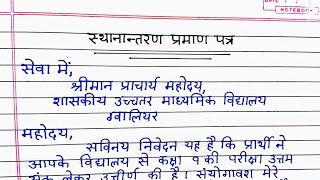 NOTEBOOK
स्थानान्तरण प्रमाण पत्र
सेवा में,
श्रीमान प्राचार्य महोदय,
शासकीय उच्चतर माध्यमिक विद्यालय
ग्वालियर
महोदय,
सविनय निवेदन यह है कि प्रार्थी ने
आपके विद्यालय से कक्षा 9 की परीक्षा उत्तम
अंक लेकर उत्तीर्ण की है। संयोगवश मेरे